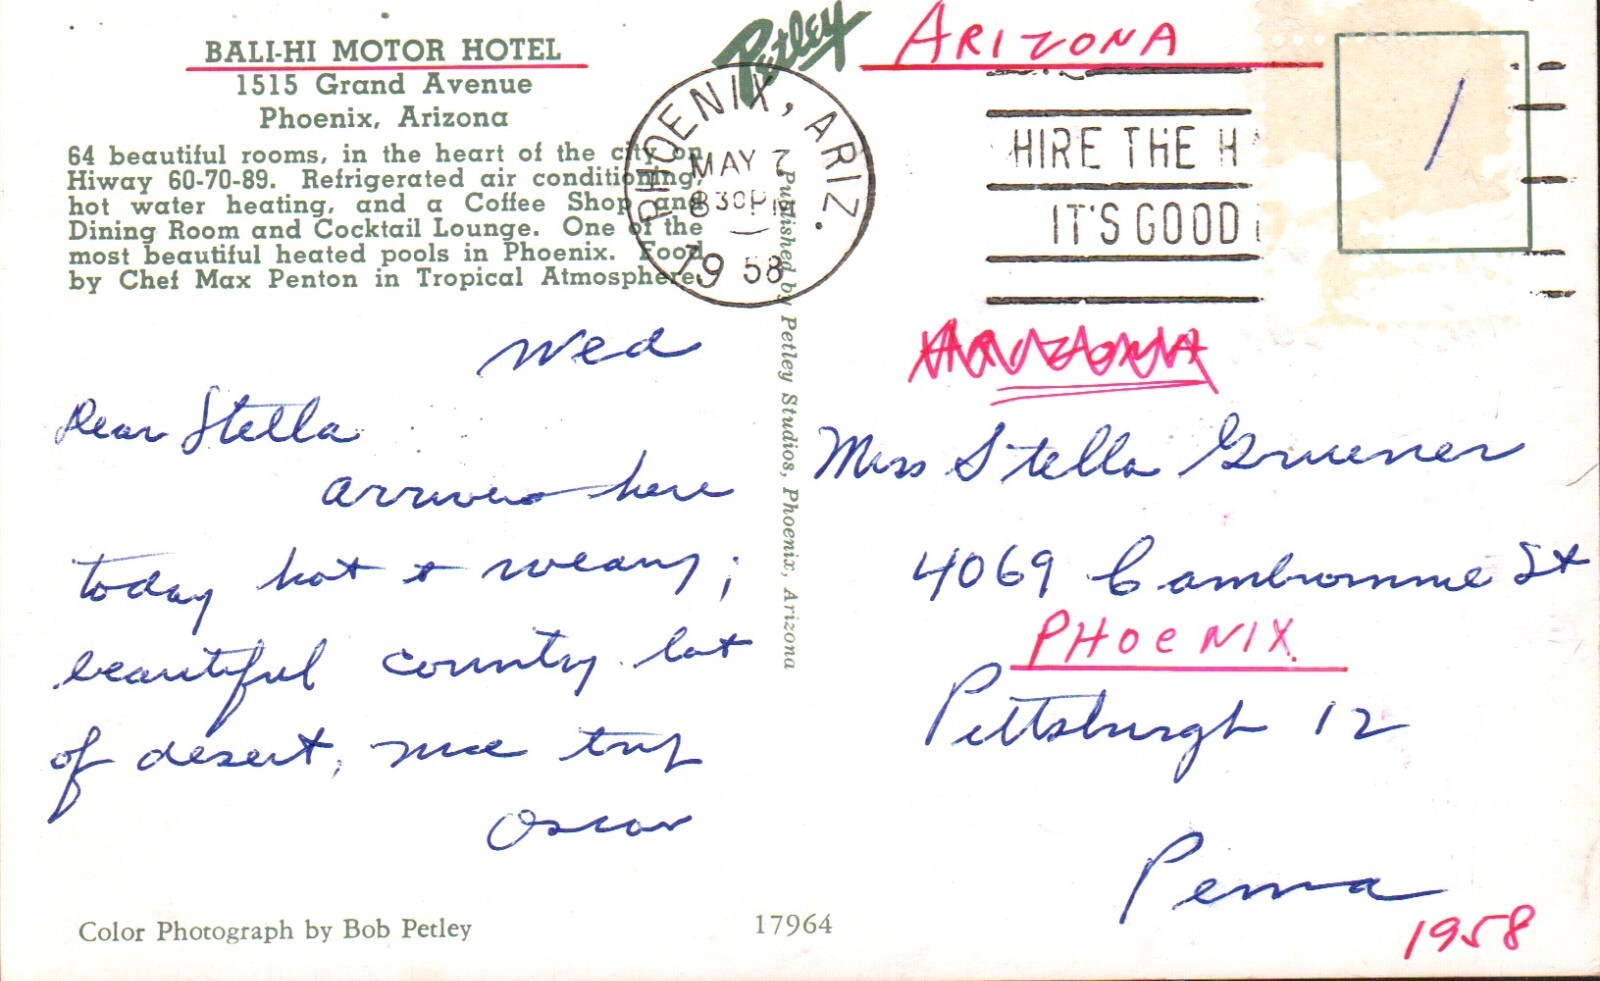 BALI-HI MOTOR HOTEL
1515 Grand Avenue
Phoenix, Arizona
64 beautiful rooms, in the heart of the city on
Hiway 60-70-89. Refrigerated air conditioning,
hot water heating, and a Coffee Shop and
Dining Room and Cocktail Lounge. One of the
most beautiful heated pools in Phoenix. Food
by Chef Max Penton in Tropical Atmosphere.
Petley
ARIZONA
PHOENIX, ARIZ.
MAY 7
830PM
1958
HIRE THE H
IT'S GOOD
/
Published by Petley Studios, Phoenix, Arizona
Wed
Dear Stella
arrived here
today hot + weary;
beautiful country lot
of desert, nice trip
Oscar
ARIZONA
Miss Stella Gruener
4069 Cambronne St
PHOENIX.
Pittsburgh 12
Penna
1958
Color Photograph by Bob Petley
17964